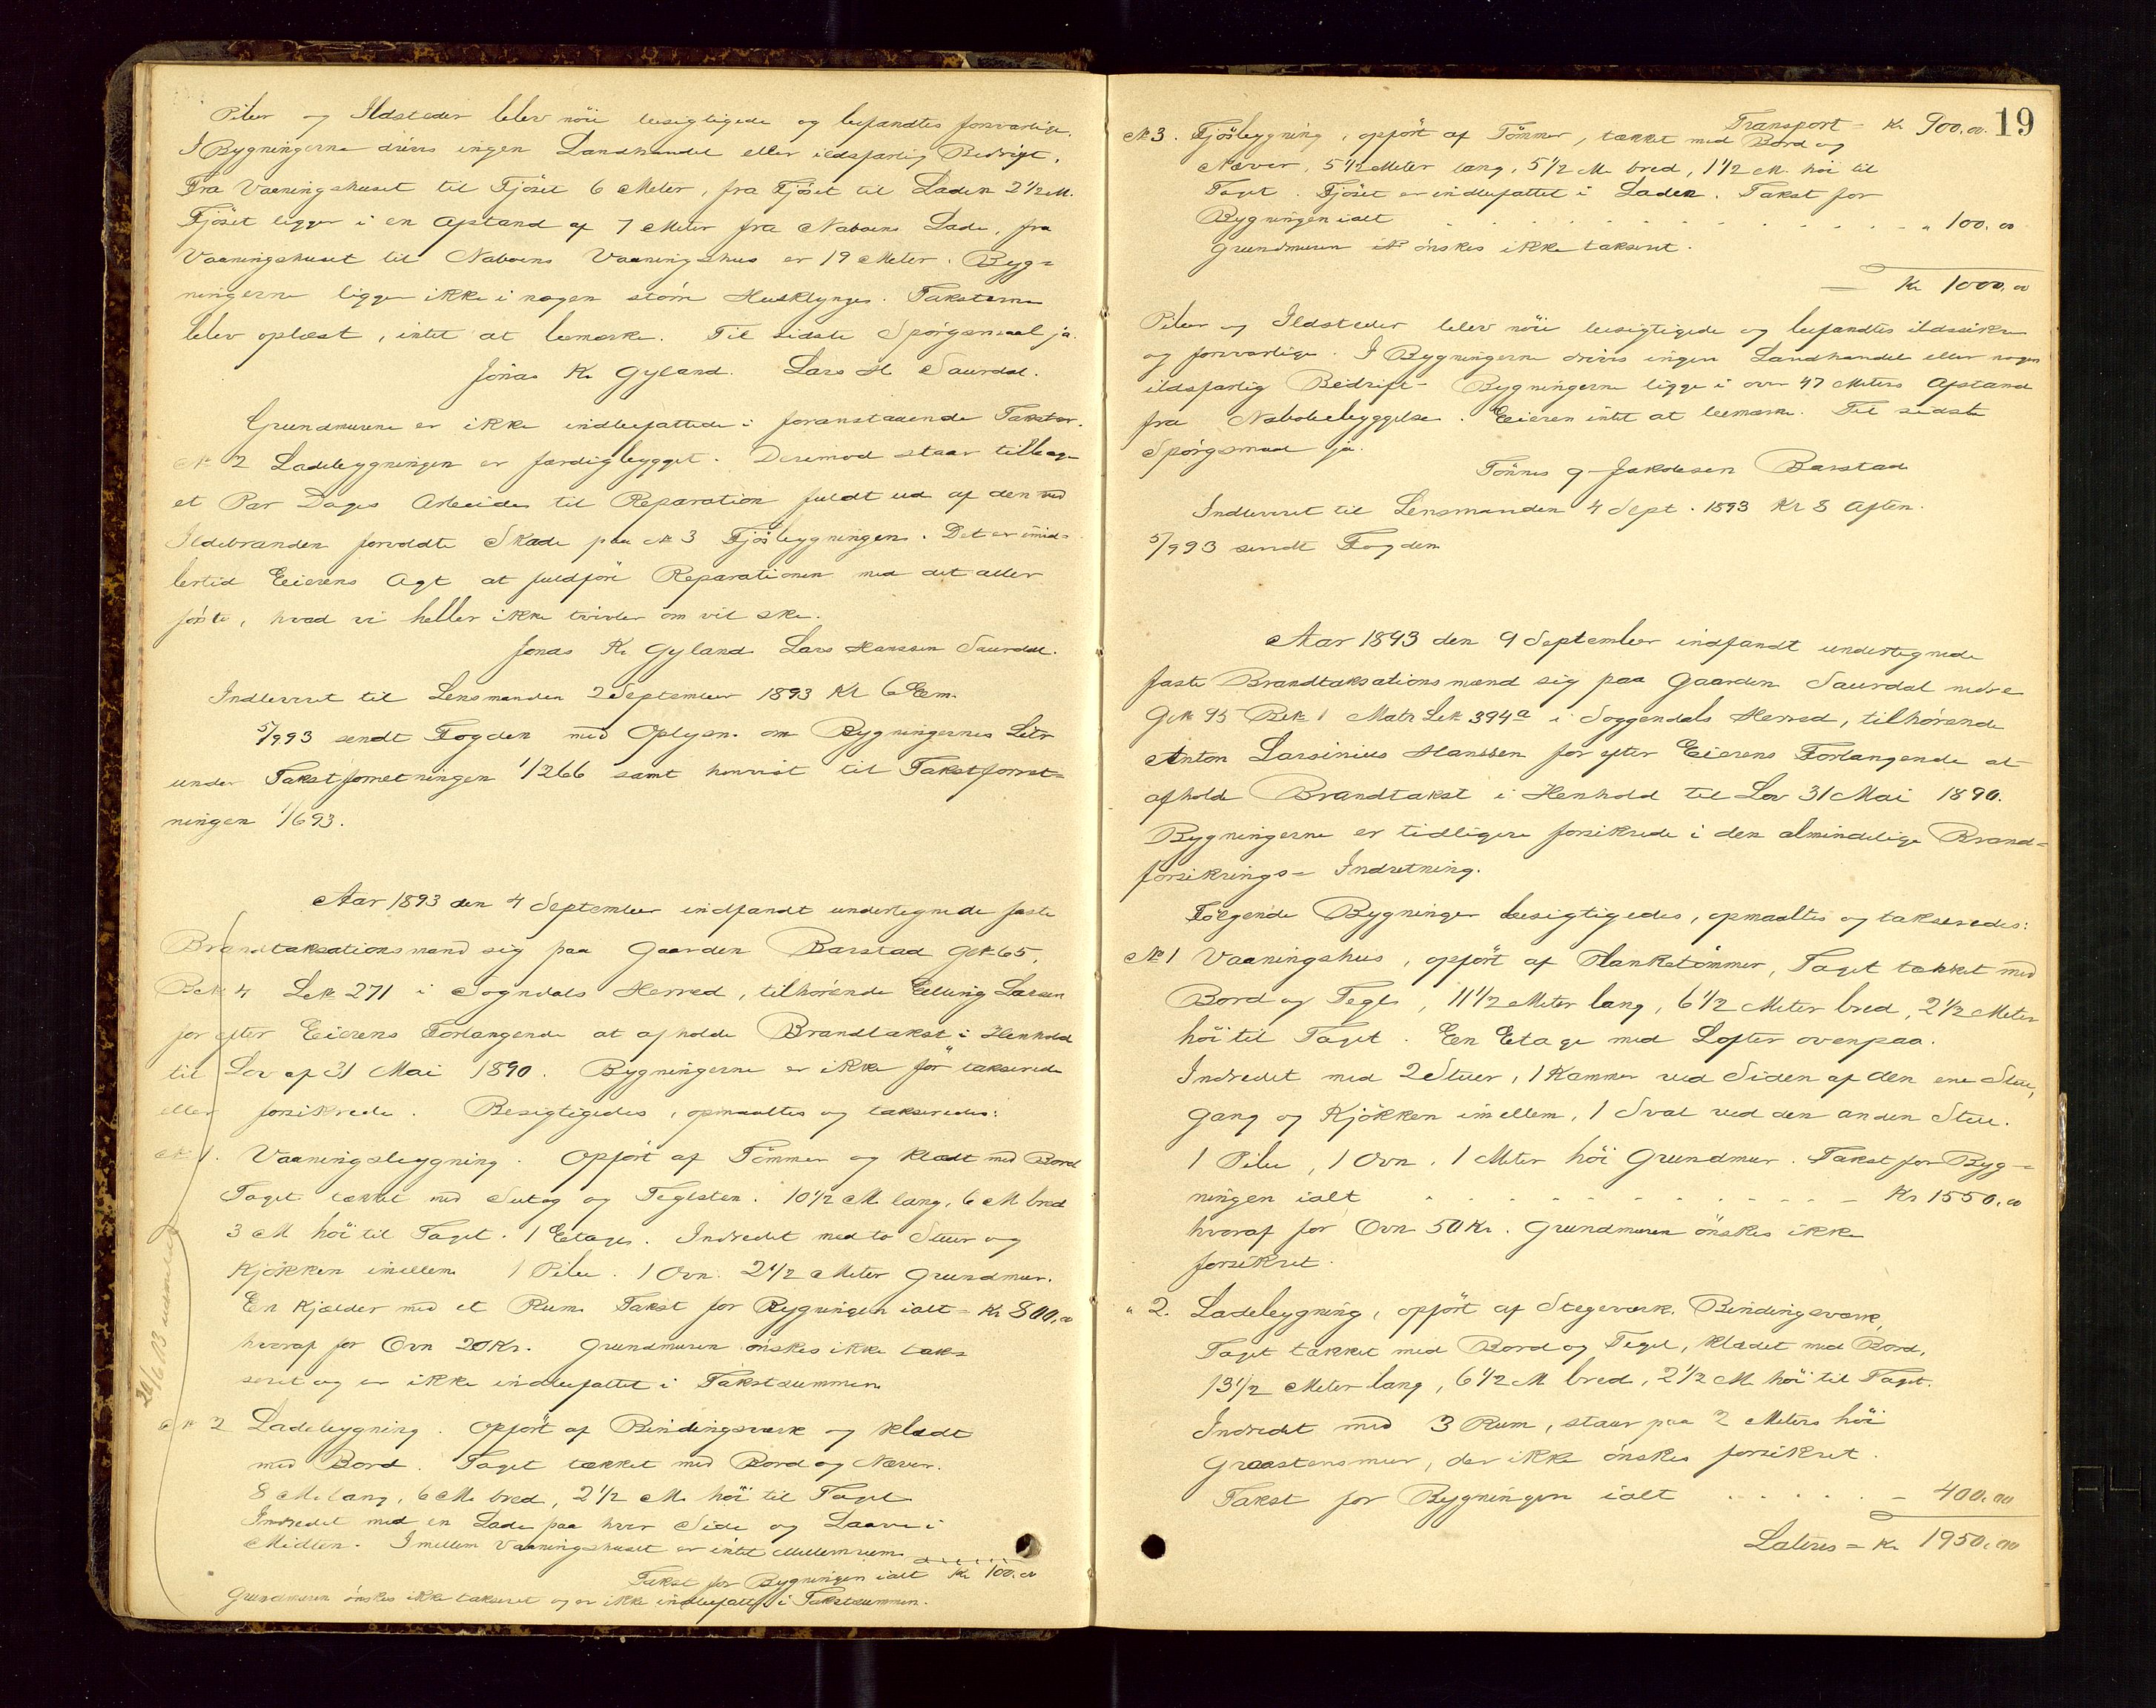 Piber og Ildsteder blev nöie besigtigede og befandtes forsvarlige.
I Bygningerne drives ingen Landhandel eller ildsfarlig Bedrift.
Fra Vaaningshuset til Fjöset 6 Meter, fra Fjöset til Laden 2 1/2 M.
Fjöset ligger i en Afstand af 7 Meter fra Naboens Lade, fra
Vaaningshuset til Naboens Vaaningshus er 19 Meter. Byg=
ningerne ligge ikke i nogen större Husklynge. Taksterne
blev oplæst, intet at bemærke. Til sidste Spörgsmaal ja.
Jonas K. Gyland. Lars H Saurdal.
Grundmurene er ikke indbefattede i foranstaaende Takster.
No 2 Ladebygningen er færdigbygget. Derimod staar tilbage
et Par Dages Arbeide til Reparation fuldt ud af den ved
Ildebranden forvoldte Skade paa No 3 Fjösbygningen. Det er imid=
lertid Eierens Agt at fuldföre Reparationen med det aller
förste, hvad vi heller ikke tvivler om vil ske.
Jonas K. Gyland Lars Hanssen Saurdal.
Indleveret til Lensmanden 2 September 1893 Kl 6 Eem.
5/9 93 sendt Fogden med Oplysn. om Bygningernes Litr
under Takstforretningen 1/2 66 samt henvist til Takstforret=
ningen 1/6 93.
Aar 1893 den 4 September indfandt undertegnede faste
Brandtaksationsmænd sig paa Gaarden Barstad GNo 65,
BNo 4 LNo 271 i Sogndals Herred, tilhörende Elling Larsen
for efter Eierens Forlangende at afholde Brandtakst i Henhold
til Lov af 31 Mai 1890. Bygningerne er ikke för takserede
eller forsikrede. Besigtigedes, opmaaltes og takseredes:
No 1. Vaaningsbygning. Opfört af Tömmer og klædt med Bord
Taget tækket med Sutag og Teglsten. 10 1/2 M. lang, 6 M bred
3 M höi til Taget. 1 Etages. Indredet med to Stuer og
Kjökken imellem 1 Pibe. 1 Ovn. 2 1/2 Meter Grundmur.
En Kjælder med et Rum. Takst for Bygningen ialt = Kr 800,00
hvoraf for Ovn 20 Kr. Grundmuren önskes ikke tak=
seret og er ikke indbefattet i Takstsummen
No 2 Ladebygning. Opfört af Bindingsværk og klædt
med Bord. Taget tækket med Bord og Næver.
8 M. lang, 6 M. bred, 2 1/2 M. höi til Taget
Indredet med en Lade paa hver Side og Laave i
Midten. Imellem Vaaningshuset er intet Mellemrum.
Takst for Bygningen ialt Kr 100,00
Grundmuren önskes ikke takseret og er ikke indbefattet i Takstsummen.
20/6 03 udmeldt
19
Transport - Kr 900.00.
No 3. Fjösbygning, opfört af Tömmer, tækket med Bord og
Næver, 5 1/2 Meter lang, 5 1/2 M. bred, 1 1/2 M. höi til
Taget. Fjöset er indbefattet i Laden. Takst for
Bygningen ialt . . . . . . . . . . " 100,00
Grundmuren önskes ikke takseret.
= Kr 1000,00
Piber og Ildsteder blev nöie besigtigede og befandtes ildssikre
og forsvarlige. I Bygningerne drives ingen Landhandel eller nogen
ildsfarlig Bedrift. Bygningerne ligge i over 47 Meters Afstand
fra Nabobebyggelse. Eieren intet at bemærke. Til sidste
Spörgsmaal ja.
Tönnes G. Jakobsen Barstad
Indleveret til Lensmanden 4 Sept. 1893 Kl 8 Aften.
5/9 93 sendt Fogden
Aar 1893 den 9 September indfandt undertegnede
faste Brandtaksationsmænd sig paa Gaarden Saurdal nedre
GNo 95 BNo 1 Matr LNo 394a i Soggendals Herred, tilhörende
Anton Larsinius Hanssen for efter Eierens Forlangende at
afholde Brandtakst i Henhold til Lov 31 Mai 1890.
Bygningerne er tidligere forsikrede i den almindelige Brand=
forsikrings= Indretning.
Fölgende Bygninger besigtigedes, opmaaltes og takseredes:
No 1 Vaaningshus, opfört af Planketömmer, Taget tækket med
Bord og Tegl, 11 1/2 Meter lang, 6 1/2 Meter bred, 2 1/2 Meter
höi til Taget. Een Etage med Lofter ovenpaa.
Indredet med 2 Stuer, 1 Kammer ved Siden af den ene Stue,
Gang og Kjökken imellem, 1 Sval ved den anden Stue.
1 Pibe, 1 Ovn. 1 Meter höi Grundmur. Takst for Byg=
ningen ialt . . . . . . . . . - Kr 1550,00
hvoraf for Ovn 50 Kr. Grundmuren önskes ikke
forsikret.
" 2. Ladebygning, opfört af Stegeværk, Bindingsværk,
Taget tækket med Bord og Tegl, klædet med Bord,
13 1/2 Meter lang, 6 1/2 M bred, 2 1/2 M. höi til Taget.
Indredet med 3 Rum, staar paa 2 Meters höi
Graastensmur, der ikke önskes forsikret.
Takst for Bygningen ialt . . . . . - 400.00
Lateris = Kr 1950,00